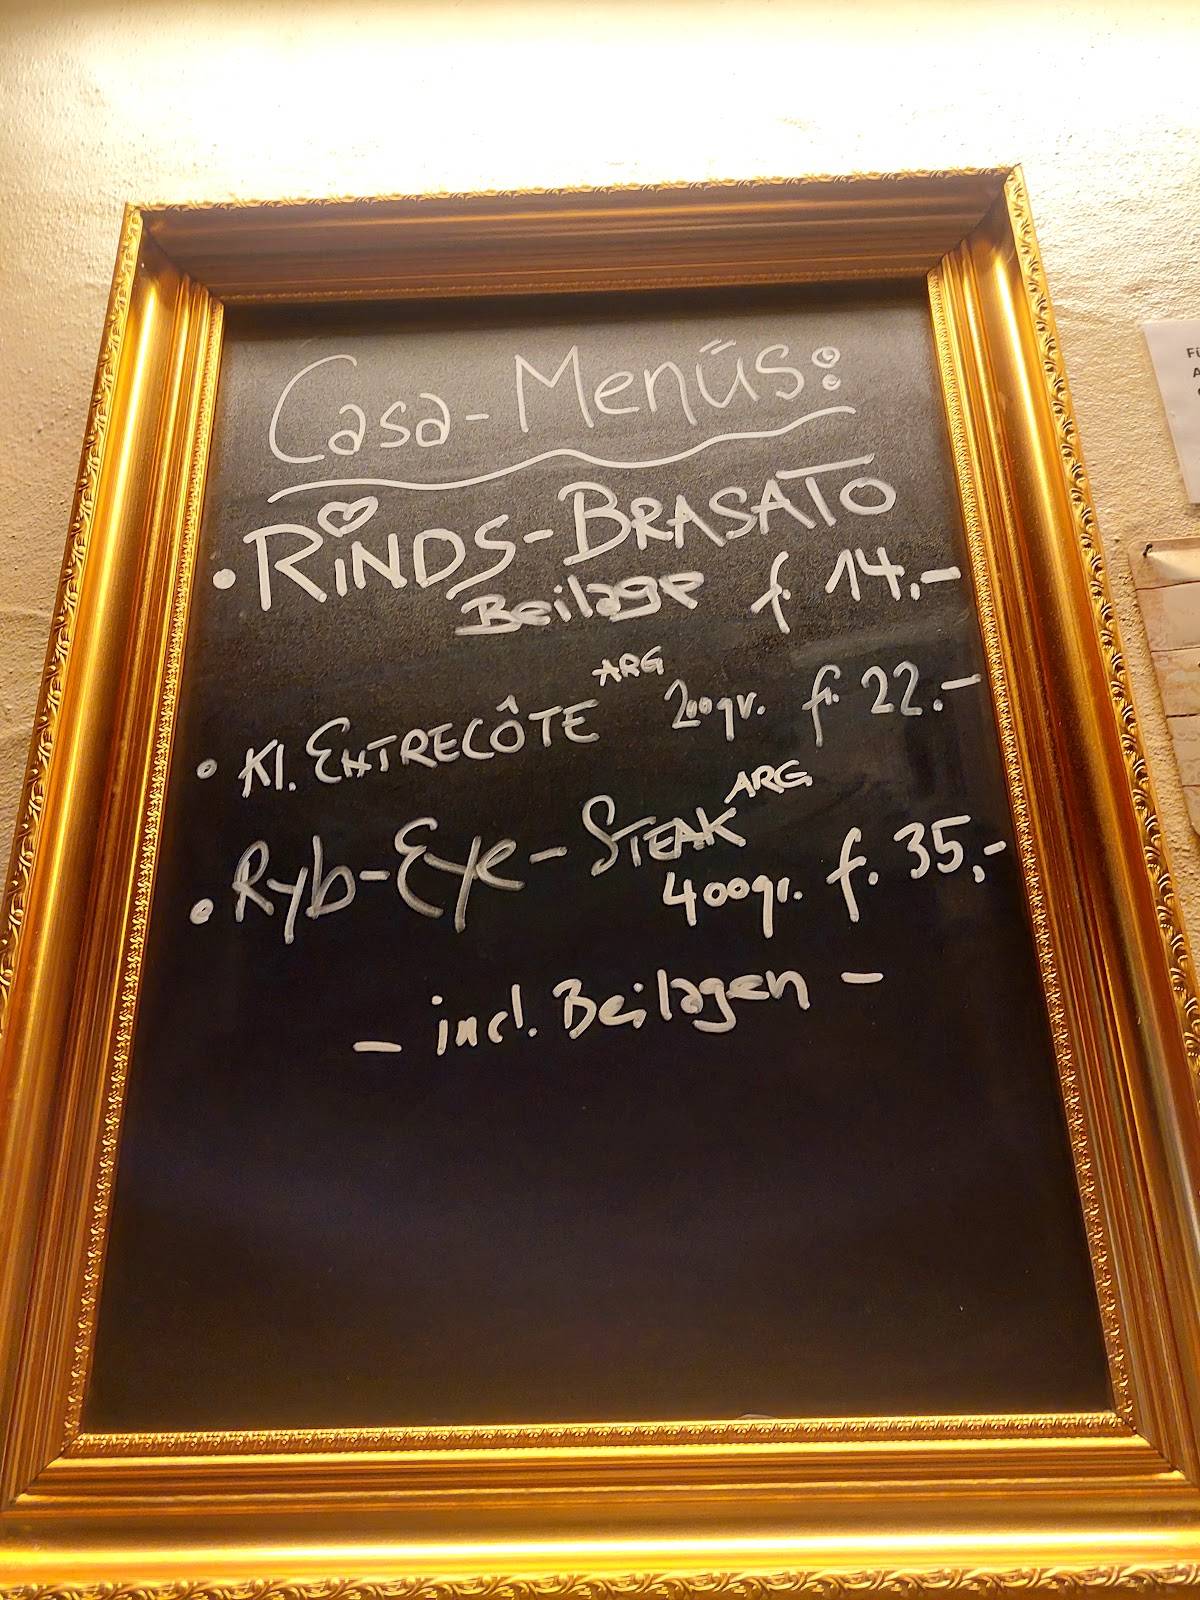 Casa-Menüs:
• RINDS-BRASATO
Beilage f. 14.-
• Kl. ENTRECÔTE ARG 200gr. fr. 22.-
• Ryb-Eye-STEAK ARG
400gr. f. 35,-
- incl. Beilagen -